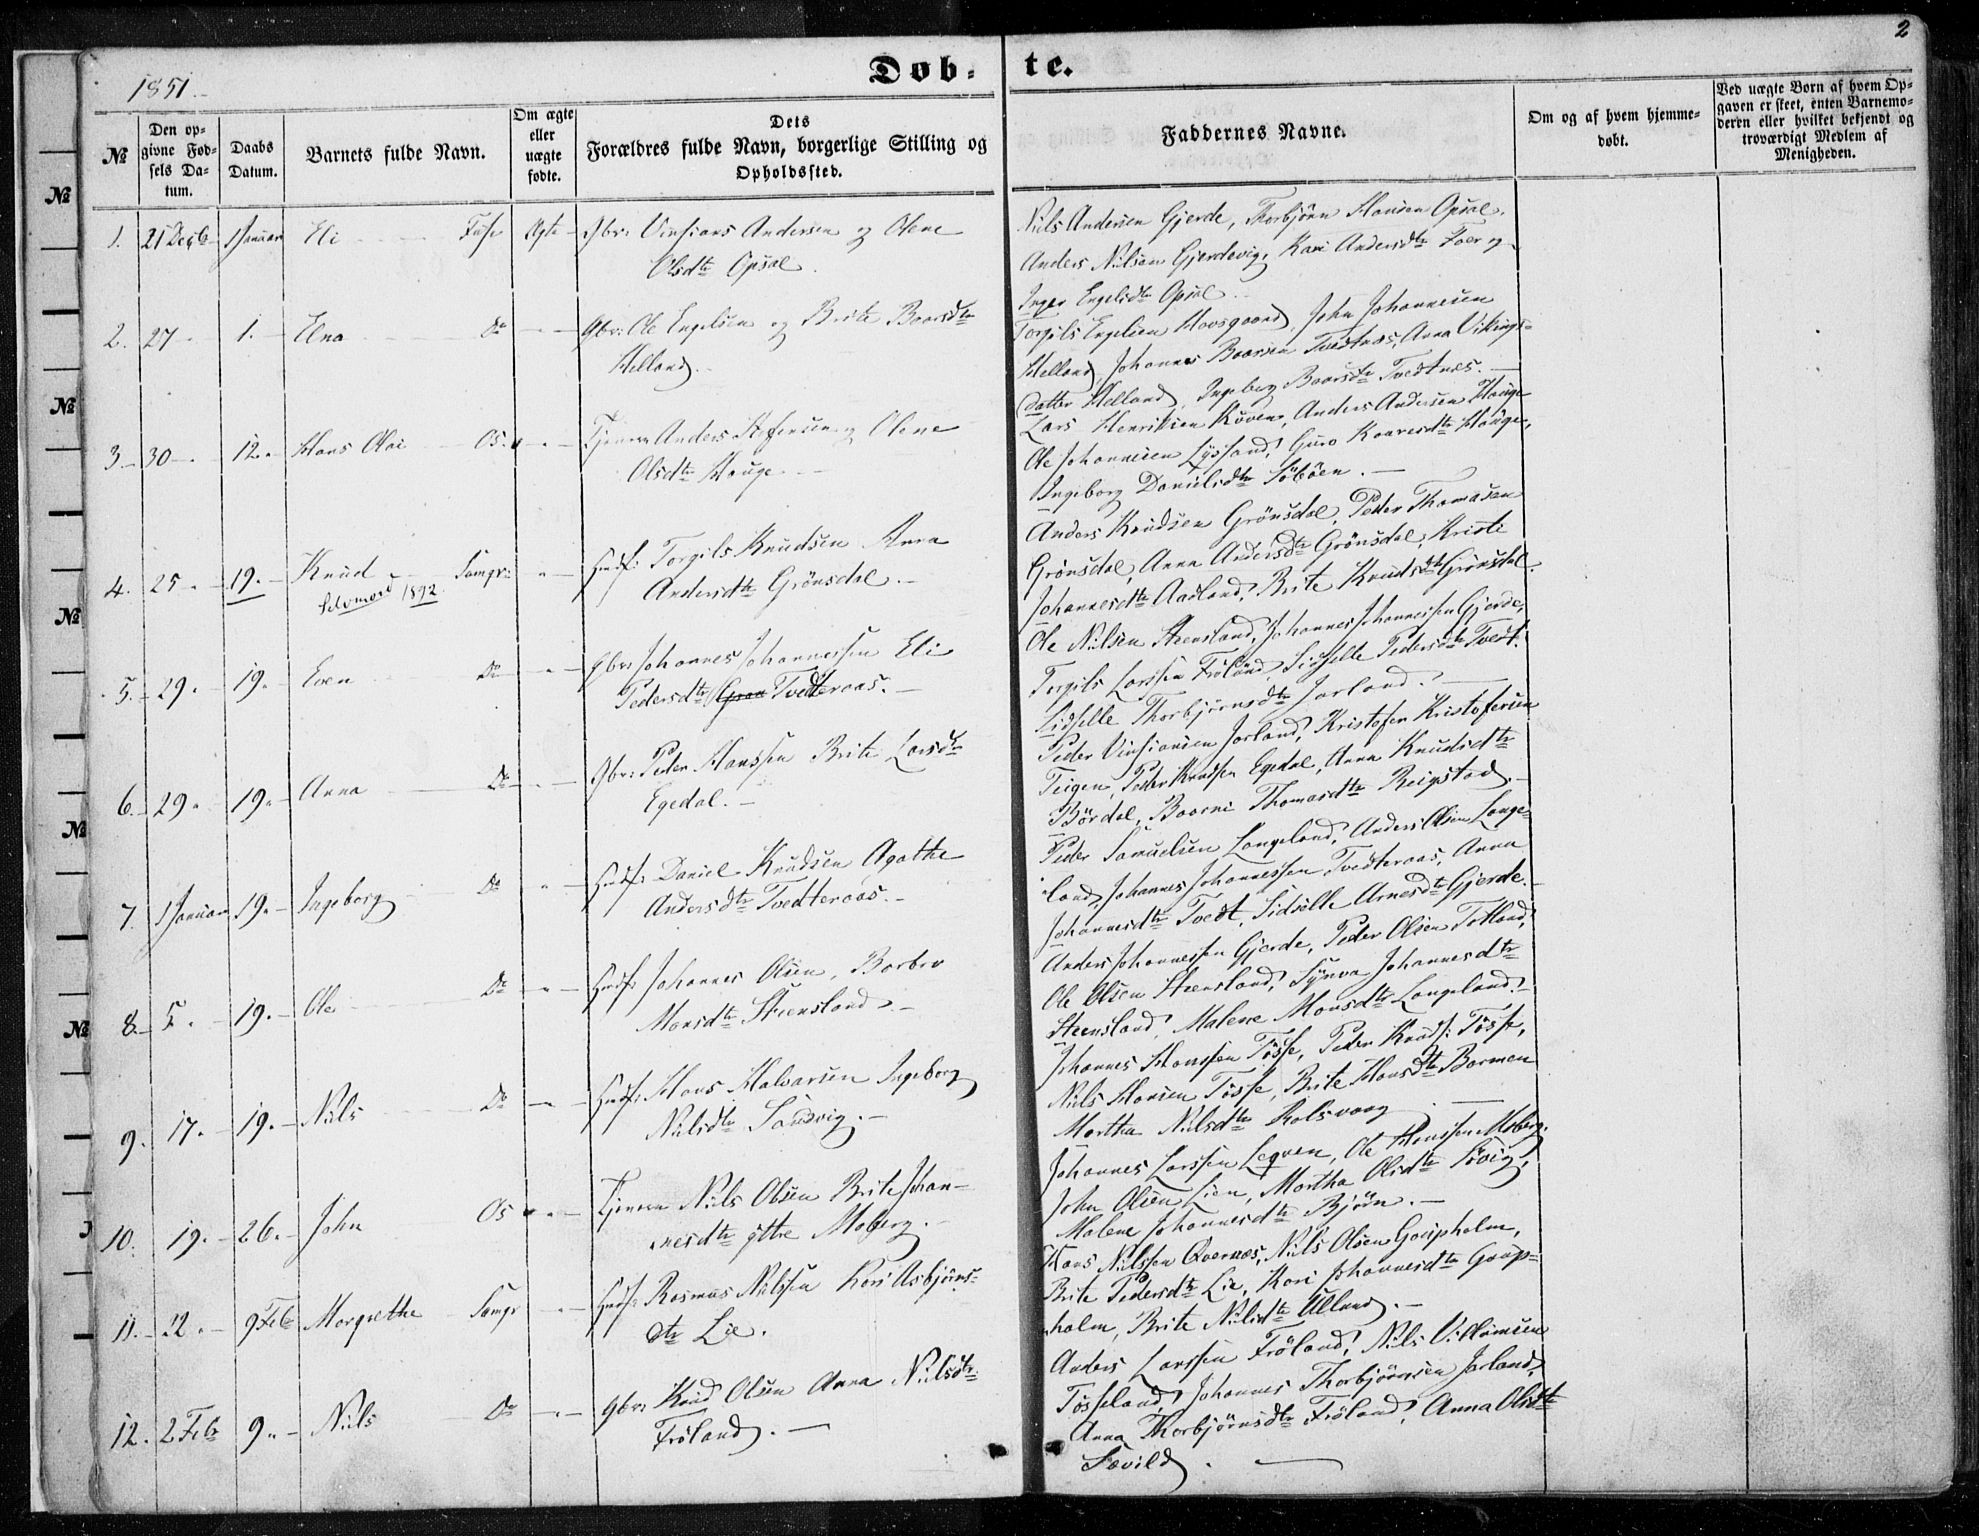 2
1851.
Døb- te.
№
Den op-
givne Fød-
sels Da-
tum.
Daabs
Datum.
Barnets fulde Navn.
Om ægte
eller
uægte
fødte.
Dets
Forældres fulde Navn, borgerlige Stilling og
Opholdssted.
Faddernes Navne.
Om og af hvem hjemme-
døbt.
Ved uægte Børn af hvem Op-
gaven er skeet, enten Barnemo-
deren eller hvilket bekjendt og
troværdigt Medlem af
Menigheden.
1. 21 Decb 1 Januar Eli Fuse Ægte Gbr: Vinsians Andersen og Olene
Olsdtr Opsal.
Niels Andersen Gjerde, Thorbjörn Hansen Opsal,
Anders Nilsen Gjerdevig, Kari Andersdtr og
Inger Engelsdtr Opsal.
2. 27 1. Elna Do Gbr: Ole Engelsen og Brite Baarsdtr
Helland.
Torgils Engelsen Hovsgaard, John Johannesen
Helland, Johannes Baarsen Tvedtnæs, Anna Vikings-
datter Helland, Ingeborg Baarsdtr Tvedtnæs.
3 30 12. Hans Olai Os. Tjenere Anders Steffensen og Olene
Olsdtr Hauge.
Lars Henriksen Röven, Anders Andersen Hauge
Ole Johannesen Lyssand, Guro Kaaresdtr Hauge,
Ingeborg Danielsdtr Söböen.
4. 25 19. Knud Samgr: Husf: Torgils Knudsen Anna
Selvmord 1892.
Andersdtr Grönsdal.
Anders Knudsen Grönsdal, Peder Thomasen
Grönsdal, Anna Andersdtr Grönsdal, Kristi
Johannesdtr Aadland, Brite Knudsdtr Grönsdal.
5. 29. 19. Even Do Gbr: Johannes Johannessen Eli
Pedersdtr Tvedteraas.
Ole Nilsen Steensland, Johannes Johannessen Gjerde,
Torgils Larssen Fröland, Sidselle Pedersdtr Tvedt.
Sidselle Thorbjörnsdtr Jarland.
6. 29. 19. Anna Do Gbr: Peder Hanssen Brite Larsdtr
Egedal.
Peder Vinsiansen Jarland, Kristofer Kristofersen
Teigen, Peder Knudsen Egedal, Anna Knudsdtr
Bördal, Baarni Thomasdtr Reigstad.
7. 1 Januar 19. Ingeborg Do Husf: Daniel Knudsen Agathe
Andersdtr Tvedteraas.
Peder Samuelsen Langeland, Anders Olsen Lange-
land, Johannes Johannessen Tvedteraas, Anna
Johannesdtr Tvedt, Sidselle Arnesdtr Gjerde.
8. 5. 19. Ole Do Husf: Johannes Olsen, Barbro
Monsdtr Steensland.
Anders Johannessen Gjerde, Peder Olsen Totland,
Ole Olsen Steensland, Synva Johannesdtr
Steensland, Malene Monsdtr Langeland.
9. 17. 19. Niels Do Husf: Hans Halvarsen Ingeborg
Nilsdtr Sandvig.
Johannes Hanssen Tösse, Peder Knuds: Tösse,
Niels Hansen Tösse, Brite Hansdtr Barmen
Martha Nilsdtr Rolsvaag
10. 19. 26. John Os Tjenere Niels Olsen Brite Johan-
nesdtr yttre Moberg.
Johannes Larssen Leqven, Ole Hanssen Moberg,
John Olsen Lien, Martha Olsdtr Søvig,
Malene Johannesdtr Björn.
11. 22. 9 Feb Margrethe Samgr Husf: Rasmus Nielsen Kari Asbjörns-
dtr Lie.
Hans Nielsen Qvernæs, Niels Olsen Gaupholm,
Brite Pedersdtr Lie, Kari Johannesdtr Gaup-
holm, Brite Nilsdtr Ulland.
12. 2 Feb 9. Niels Do Gbr: Knud Olsen Anna Nielsdtr
Fröland.
Anders Larssen Fröland, Niels Villumsen
Tösseland, Johannes Thorbjörnsen Jarland,
Anna Thorbjörnsdtr Fröland, Anna Olsdtr
Sævild.